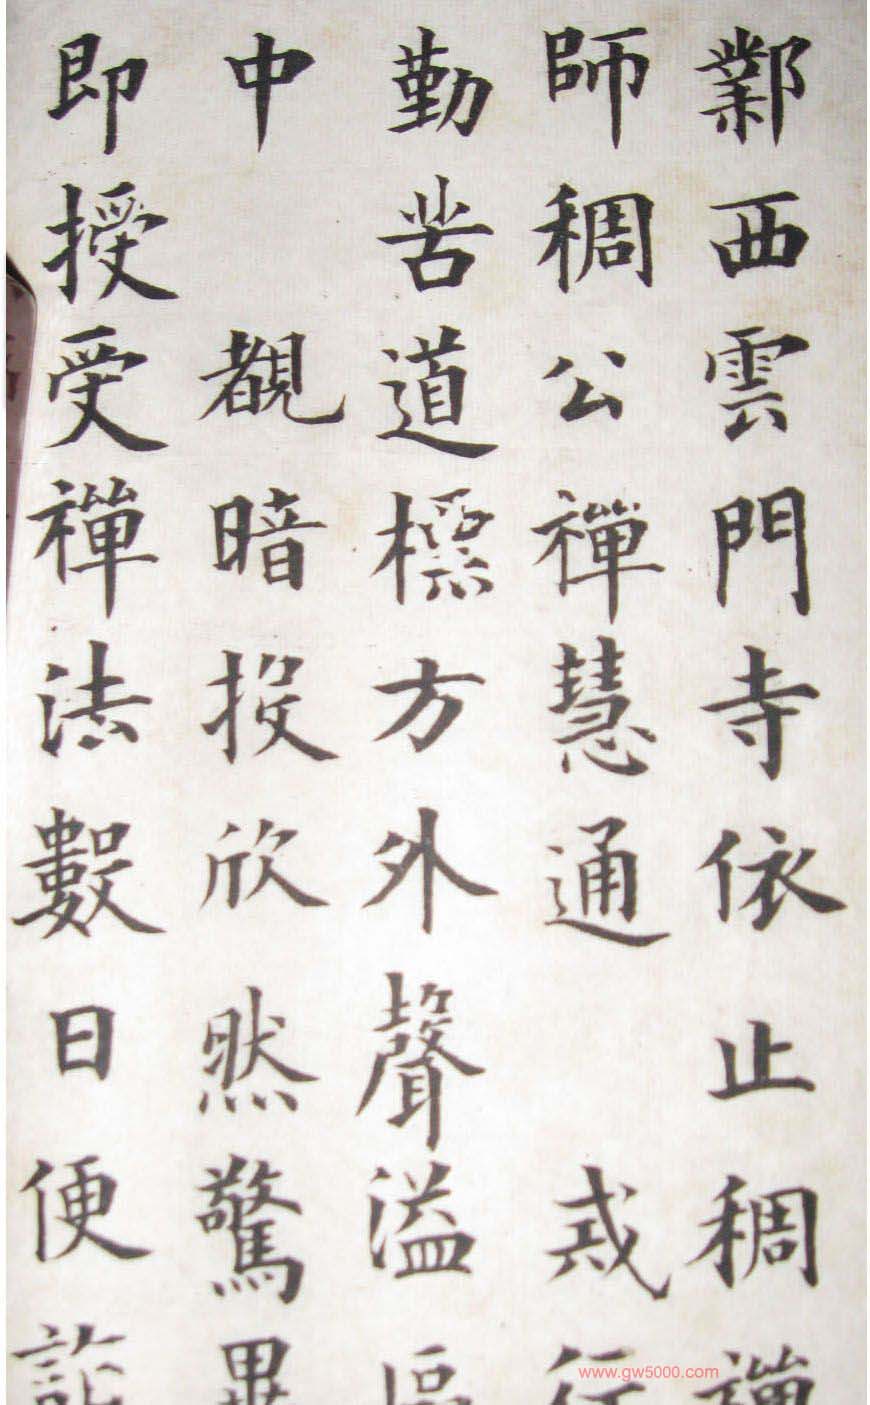 鄴西雲門寺依止稠禪
師稠公禪慧通 戒行
勤苦道標方外聲溢區
中 覩暗投欣然驚
即授受禪法數日便
www.gw5000.com